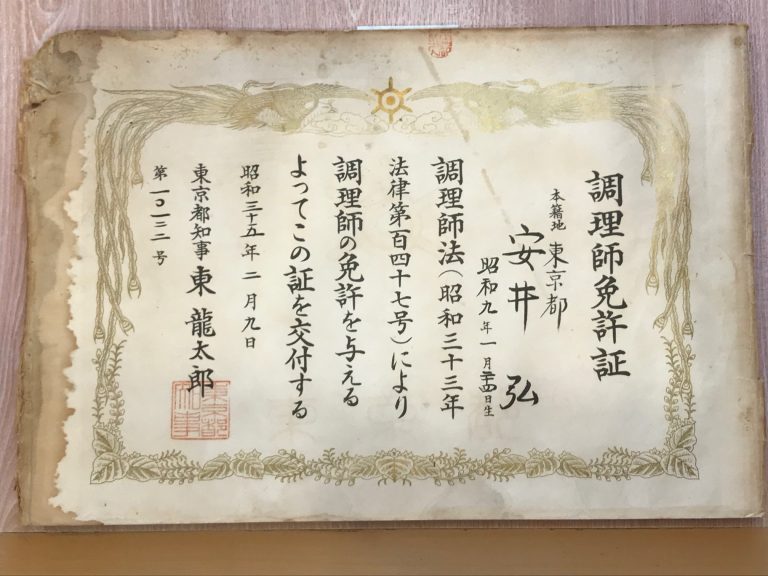 調理師免許証
本籍地 東京都
安井弘
昭和九年一月二十四日生
調理師法(昭和三十三年
法律第百四十七号)により
調理師の免許を与える
よってこの証を交付する
昭和三十五年二月九日
東京都知事 東龍太郎
東京都知事